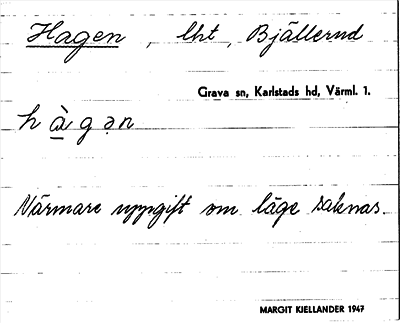 Hagen, lht, Bjällerud
Grava sn, Karlstads hd, Värml. 1.
hàgən
Närmare uppgift om läge saknas.
MARGIT KJELLANDER 1947